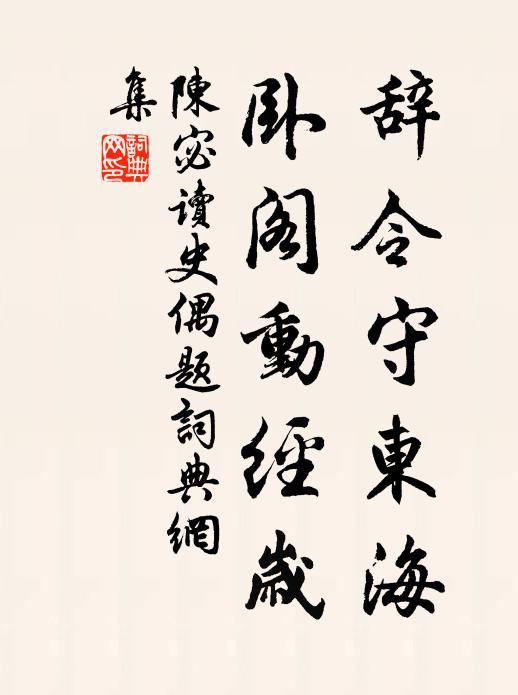 辞令守東海
臥閣動經歲
陳宓讀史偶題詞典網
集
詞典網印